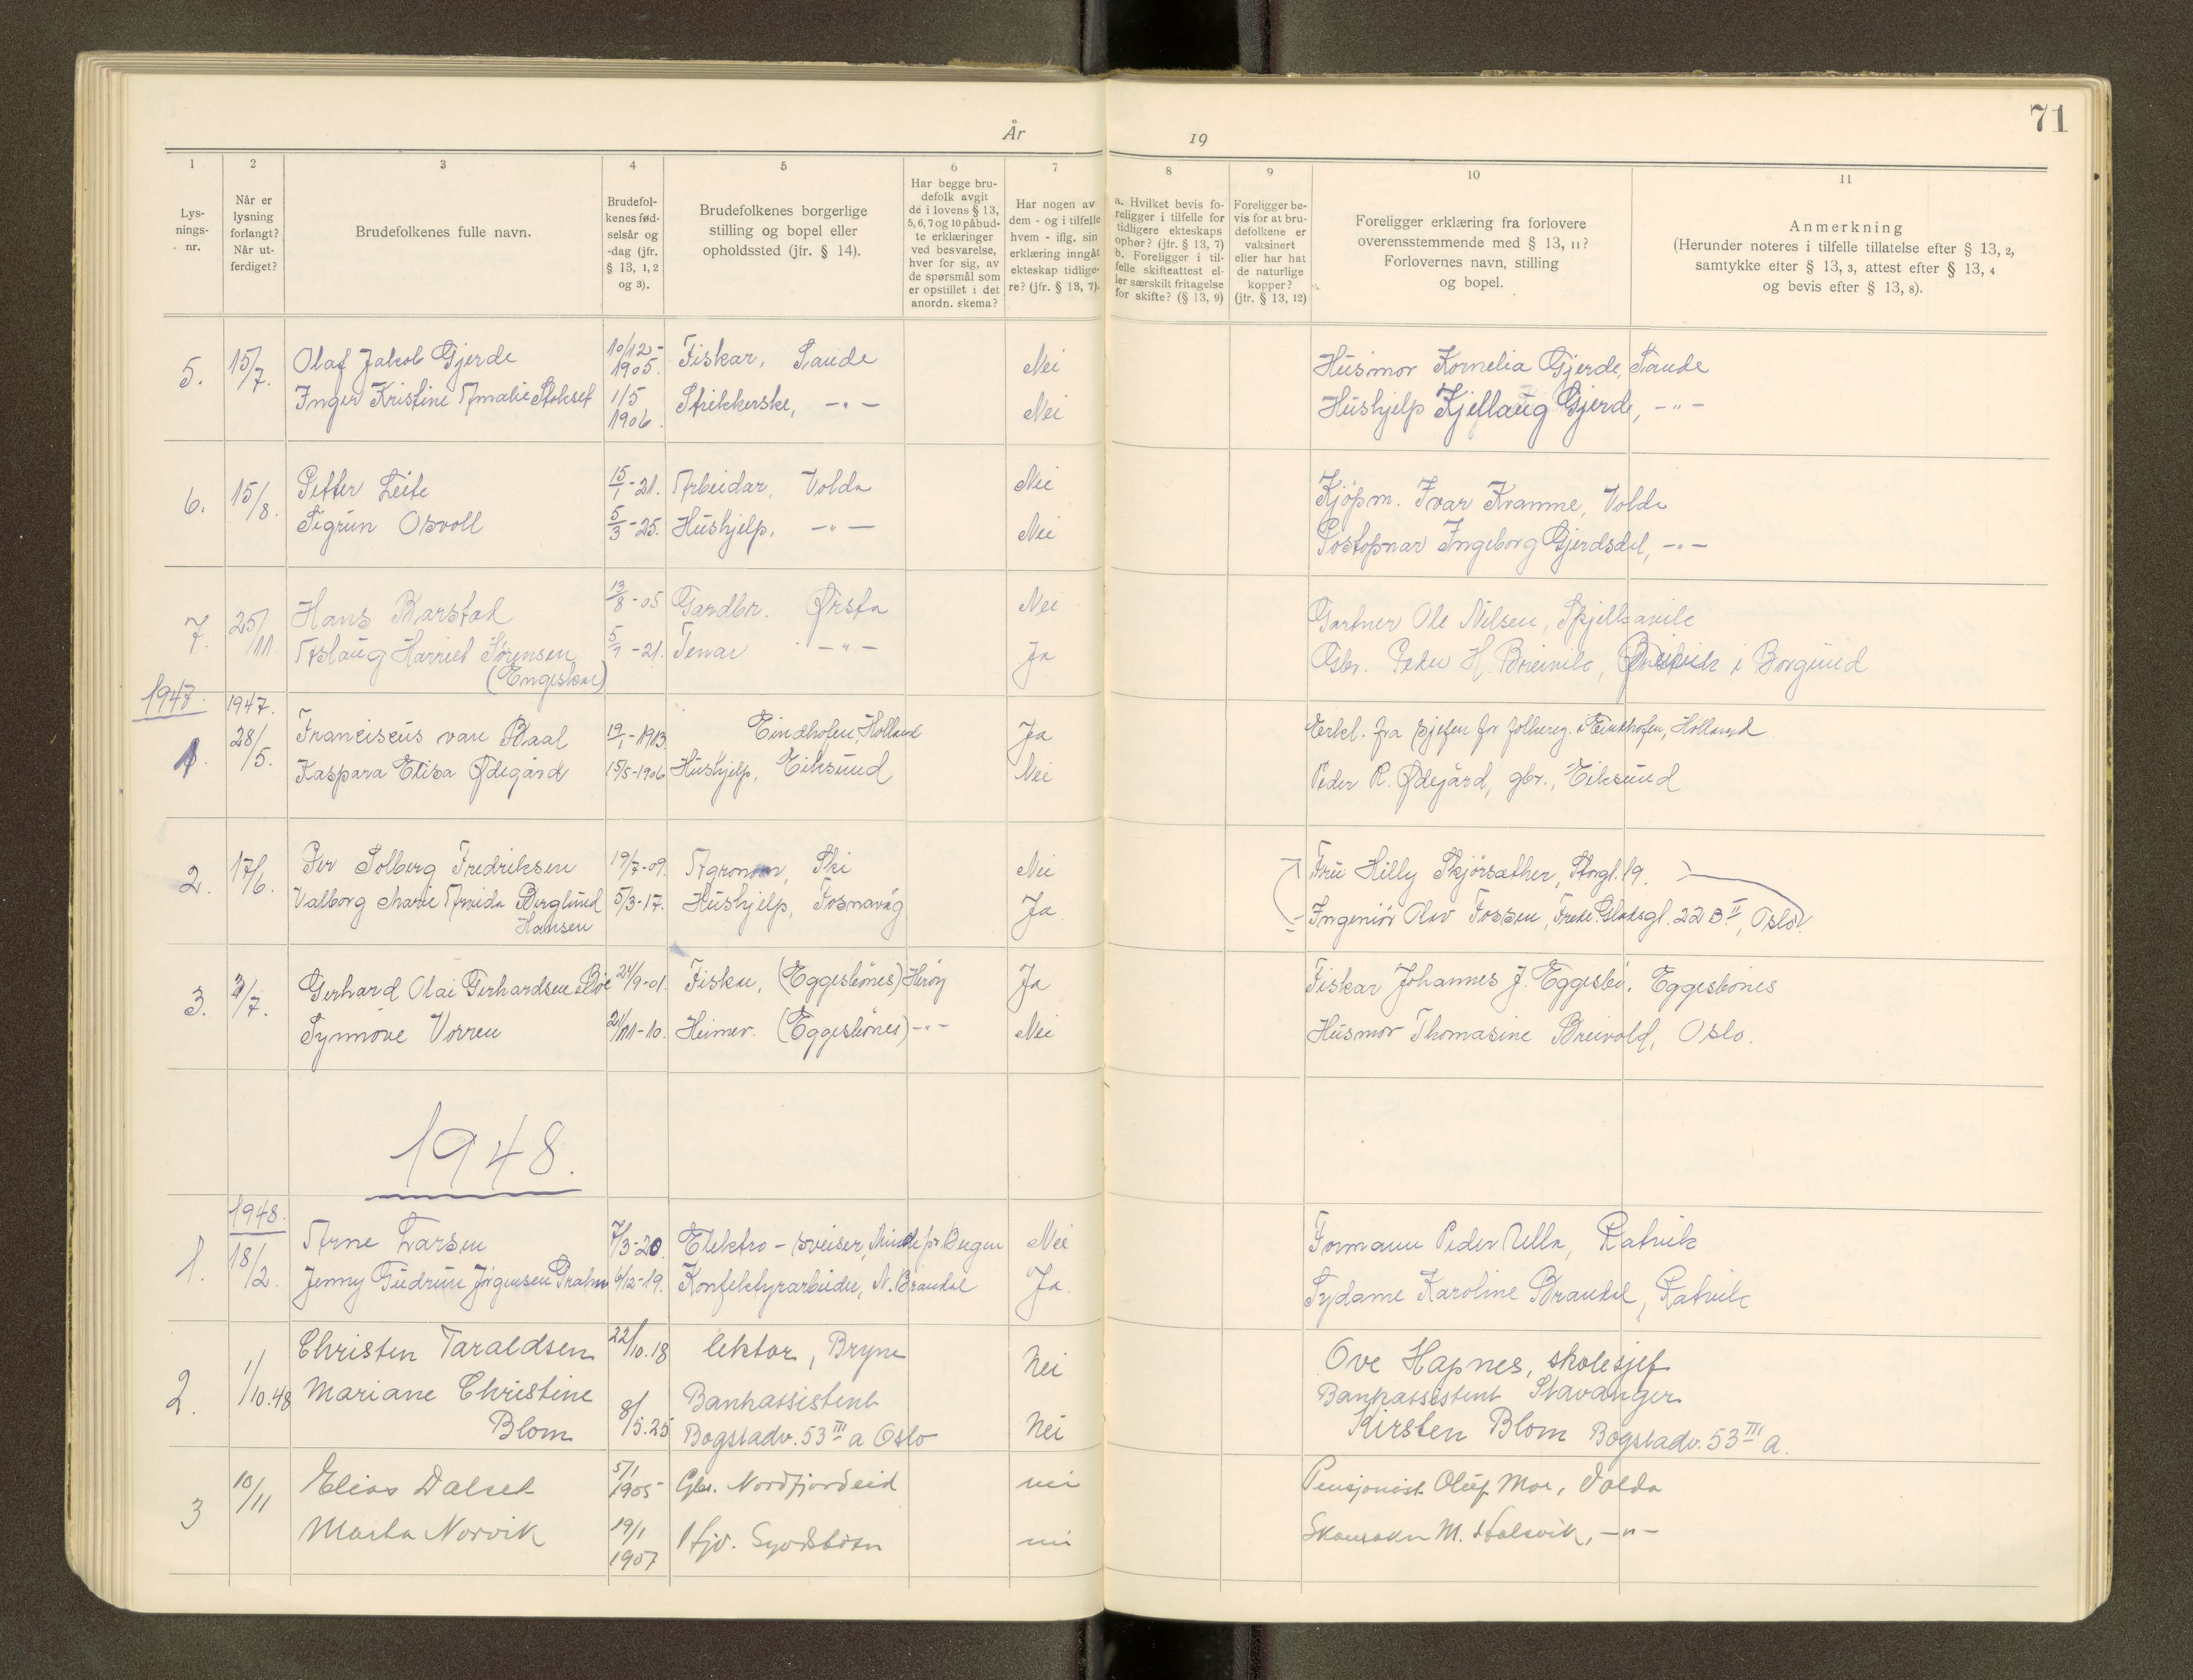 71
År 19
1 2 3 4 5 6 7 8 9 10 11
Lys-
nings-
nr.
Når er
lysning
forlangt?
Når ut-
ferdiget?
Brudefolkenes fulle navn.
Brudefol-
kenes fød-
selsår og
-dag (jfr.
§ 13, 1, 2
og 3).
Brudefolkenes borgerlige
stilling og bopel eller
opholdssted (jfr. § 14).
Har begge bru-
defolk avgit
de i lovens § 13,
5, 6, 7 og 10 påbud-
te erklæringer
ved besvarelse,
hver for sig, av
de spørsmål som
er opstillet i det
anordn. skema?
Har nogen av
dem - og i tilfelle
hvem - iflg. sin
erklæring inngåt
ekteskap tidlige-
re? (jfr. § 13, 7).
a. Hvilket bevis fo-
religger i tilfelle for
tidligere ekteskaps
ophør? (jfr. § 13, 7)
b. Foreligger i til-
felle skifteattest el-
ler særskilt fritagelse
for skifte? (§ 13, 9)
Foreligger be-
vis for at bru-
defolkene er
vaksinert
eller har hat
de naturlige
kopper?
(jfr. § 13, 12)
Foreligger erklæring fra forlovere
overensstemmende med § 13, 11?
Forlovernes navn, stilling
og bopel.
Anmerkning
(Herunder noteres i tilfelle tillatelse efter § 13, 2,
samtykke efter § 13, 3, attest efter § 13, 4
og bevis efter § 13, 8).
5. 15/7. Olaf Jakob Gjerde 10/12- 1905. Fiskar, Sande Nei Husmor Kornelia Gjerde, Sande
Inger Kristine Amalie Stokset 1/5 1906. Strikkerske, -"- Nei Hushjelp Kjellaug Gjerde, -"-
6. 15/8. Petter Leite 15/1-21. Arbeidar, Volda Nei Kjøpm. Ivar Kramme, Volda
Sigrun Osvoll 5/3-25. Hushjelp, -"- Nei Postopnar Ingeborg Gjerdsdel, -"-
7. 25/11 Hans Barstad 13/8-05 Gardbr. Ørsta Nei Gartner Ole Nilsen, Spjelkavik
Aslaug Harriet Sørensen 5/7-21. Tenar -"- Ja Gbr. Peder H. Breivik, Breivik i Borgund
(Engeskar)
1947. 1947.
1. 28/5. Franciscus van Baal 19/1-1913 Eindhofen, Holland Ja Erkl. fra sjefen for folkereg. i Eindhofen, Holland
Kaspara Elisa Ødegård 15/5-1906 Hushjelp, Eiksund Nei Peder R. Ødegård, gbr., Eiksund
2. 17/6. Per Solberg Fredriksen 19/7-09. Agronom, Ski Nei Fru Hilly Skjørsæther, Storgt. 19.
Valborg Marie Armida Berglund 5/3-17. Hushjelp, Fosnavåg Ja Ingeniør Olav Fossen, Fred. Gladsgt. 22 B II, Oslo.
Hansen
3. 3/7. Gerhard Olai Gerhardsen Bøe 24/9-01. Fisker, (Eggesbønes) Herøy Ja Fiskar Johannes J. Eggesbø, Eggesbønes
Synnøve Vorren 21/11-10. Heimev. (Eggesbønes) -"- Nei Husmor Thomasine Breivold, Oslo.
1948.
1948.
1. 18/2. Arne Larsen 7/3-20. Elektro-sveiser, Minde pr. Bergen Nei Formann Peder Ulla, Ratvik
Jenny Gudrun Jørgensen Prahm 6/12-19. Konfektyrarbeider, N. Brandal Ja. Sydame Karoline Brandal, Ratvik
2. 1/10.48 Christen Taraldsen 22/10.18 lektor, Bryne Nei Ove Hapnes, skolesjef
Mariane Christine 8/5.25 Bankassistent Bankassistent Stavanger
Blom Bogstadv. 53 III a Oslo Nei Kirsten Blom Bogstadv. 53 III a.
3 10/11 Elias Dalset 5/1 1905 Gbr. Nordfjordeid nei Pensjonist Oluf Moe, Volda
Marta Norvik 19/1 1907 nei M. Halsvik, -"-